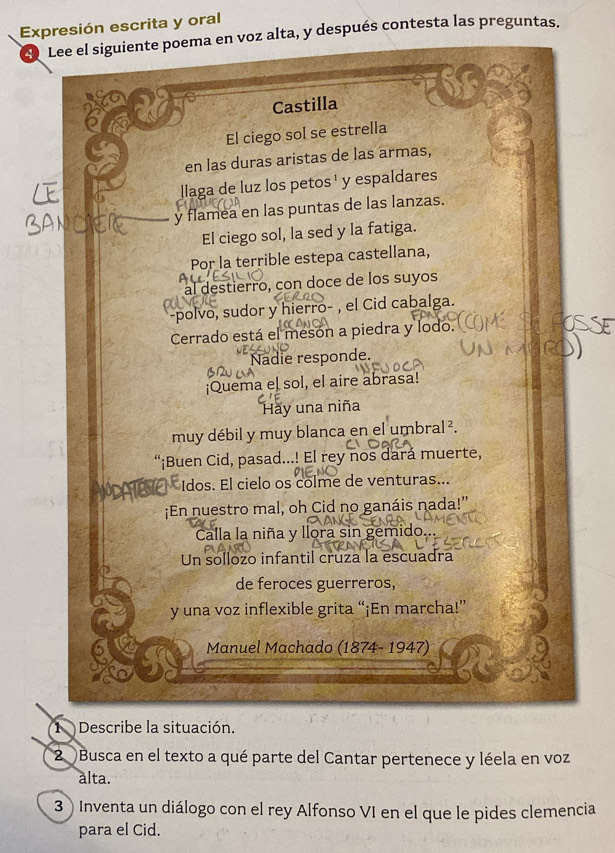 Expresión escrita y oral
4 Lee el siguiente poema en voz alta, y después contesta las preguntas.
Castilla
El ciego sol se estrella
en las duras aristas de las armas,
llaga de luz los petos¹ y espaldares
LE
BANDIERE
y flamea en las puntas de las lanzas.
El ciego sol, la sed y la fatiga.
Por la terrible estepa castellana,
ALL'ESILIO
al destierro, con doce de los suyos
POLVERE FERRO
-polvo, sudor y hierro- , el Cid cabalga.
LOCANDA FANGO (COME SE FOSSE
Cerrado está el mesón a piedra y lodo.
UN MURO)
NESSUNO
Nadie responde.
BRUCIA INFUOCA
¡Quema el sol, el aire abrasa!
C'È
Hay una niña
muy débil y muy blanca en el umbral ².
CI DARÀ
"¡Buen Cid, pasad...! El rey nos dará muerte,
PIENO
ANDATEVENE Idos. El cielo os colme de venturas...
¡En nuestro mal, oh Cid no ganáis nada!"
TACE PIANGE SENZA LAMENTO
Calla la niña y llora sin gemido...
PIANTO ATTRAVERSA
Un sollozo infantil cruza la escuadra
de feroces guerreros,
y una voz inflexible grita "¡En marcha!"
Manuel Machado (1874- 1947)
1 Describe la situación.
2 Busca en el texto a qué parte del Cantar pertenece y léela en voz
alta.
3 Inventa un diálogo con el rey Alfonso VI en el que le pides clemencia
para el Cid.